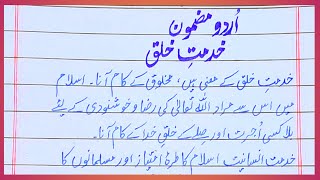 اُردو مضمون
خدمتِ خلق
خدمتِ خلق کے معنی ہیں، مخلوق کے کام آنا۔ اسلام
میں اس سے مراد اللہ تعالیٰ کی رضا و خوشنودی کے لیے
بلا کسی اُجرت اور صلے کے خلقِ خدا کے کام آنا۔
خدمتِ انسانیت اسلام کا طرۂ امتیاز اور مسلمانوں کا